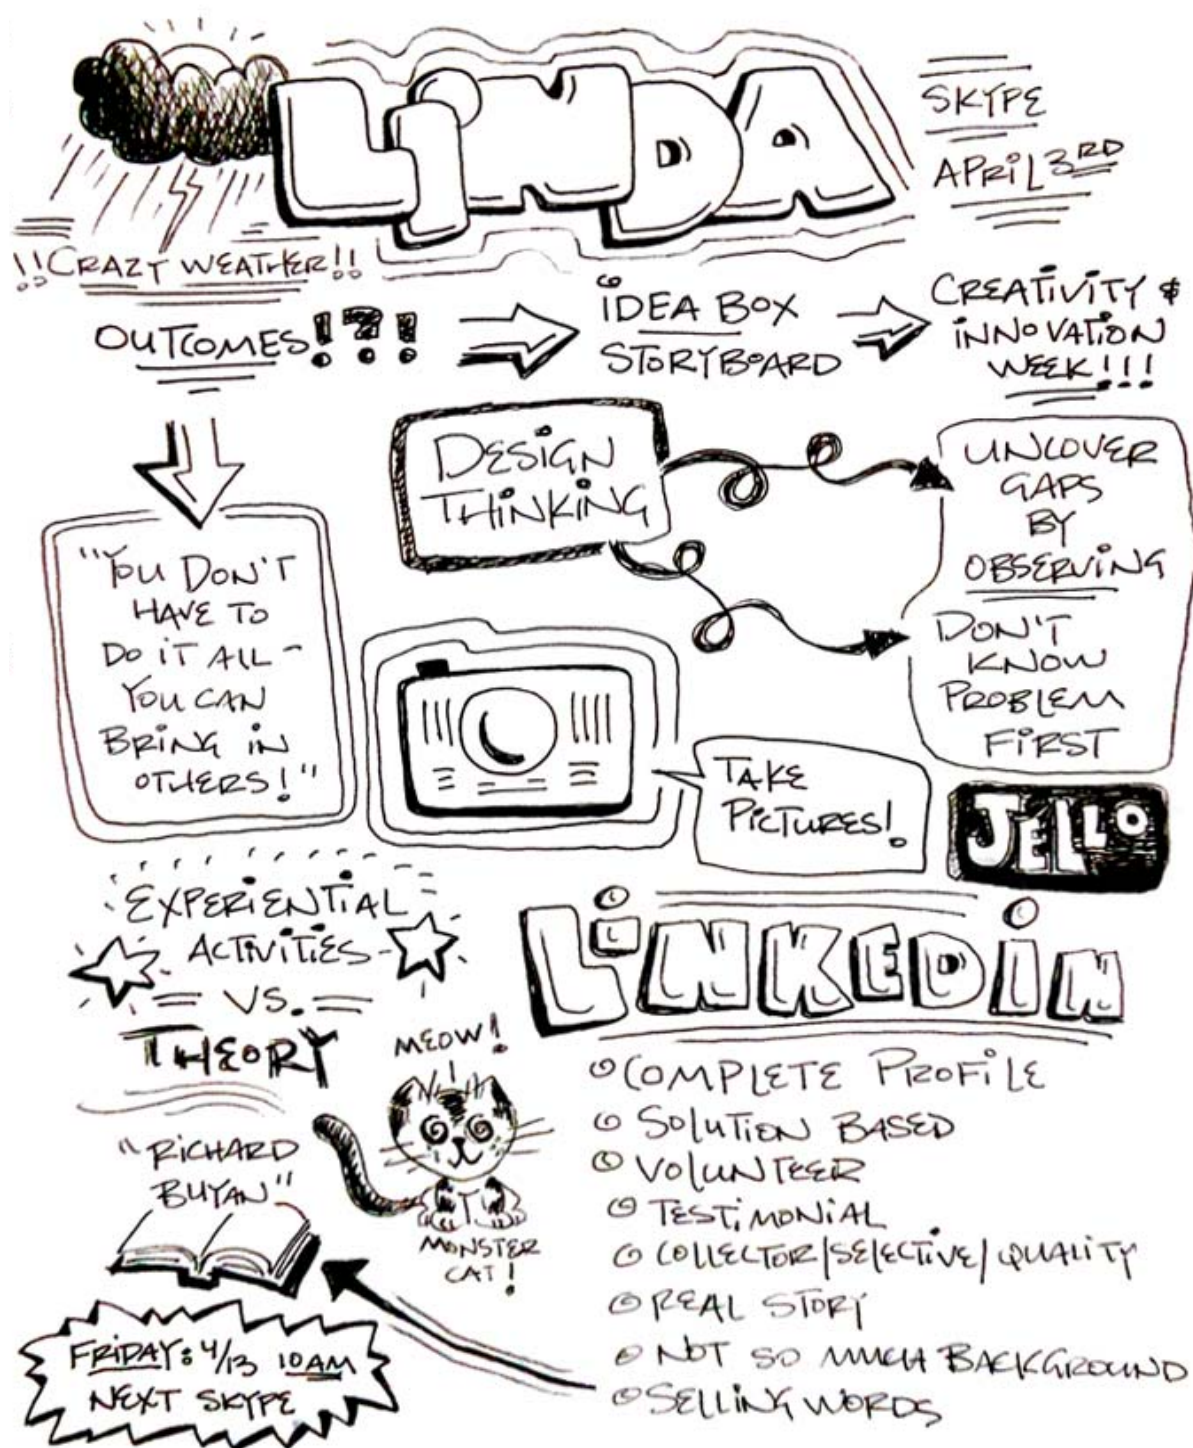 LINDA
SKYPE
APRIL 3RD
!!CRAZY WEATHER!!
OUTCOMES!?!
IDEA BOX
STORYBOARD
CREATIVITY &
INNOVATION
WEEK!!!
DESIGN
THINKING
UNCOVER
GAPS
BY
OBSERVING
DON'T
KNOW
PROBLEM
FIRST
"YOU DON'T
HAVE TO
DO IT ALL -
YOU CAN
BRING IN
OTHERS!"
TAKE
PICTURES!
JELLO
EXPERIENTIAL
ACTIVITIES
VS.
THEORY
LINKEDIN
MEOW!
MONSTER
CAT!
"RICHARD
BUYAN"
COMPLETE PROFILE
SOLUTION BASED
VOLUNTEER
TESTIMONIAL
COLLECTOR/SELECTIVE/QUALITY
REAL STORY
NOT SO MUCH BACKGROUND
SELLING WORDS
FRIDAY: 4/13 10AM
NEXT SKYPE